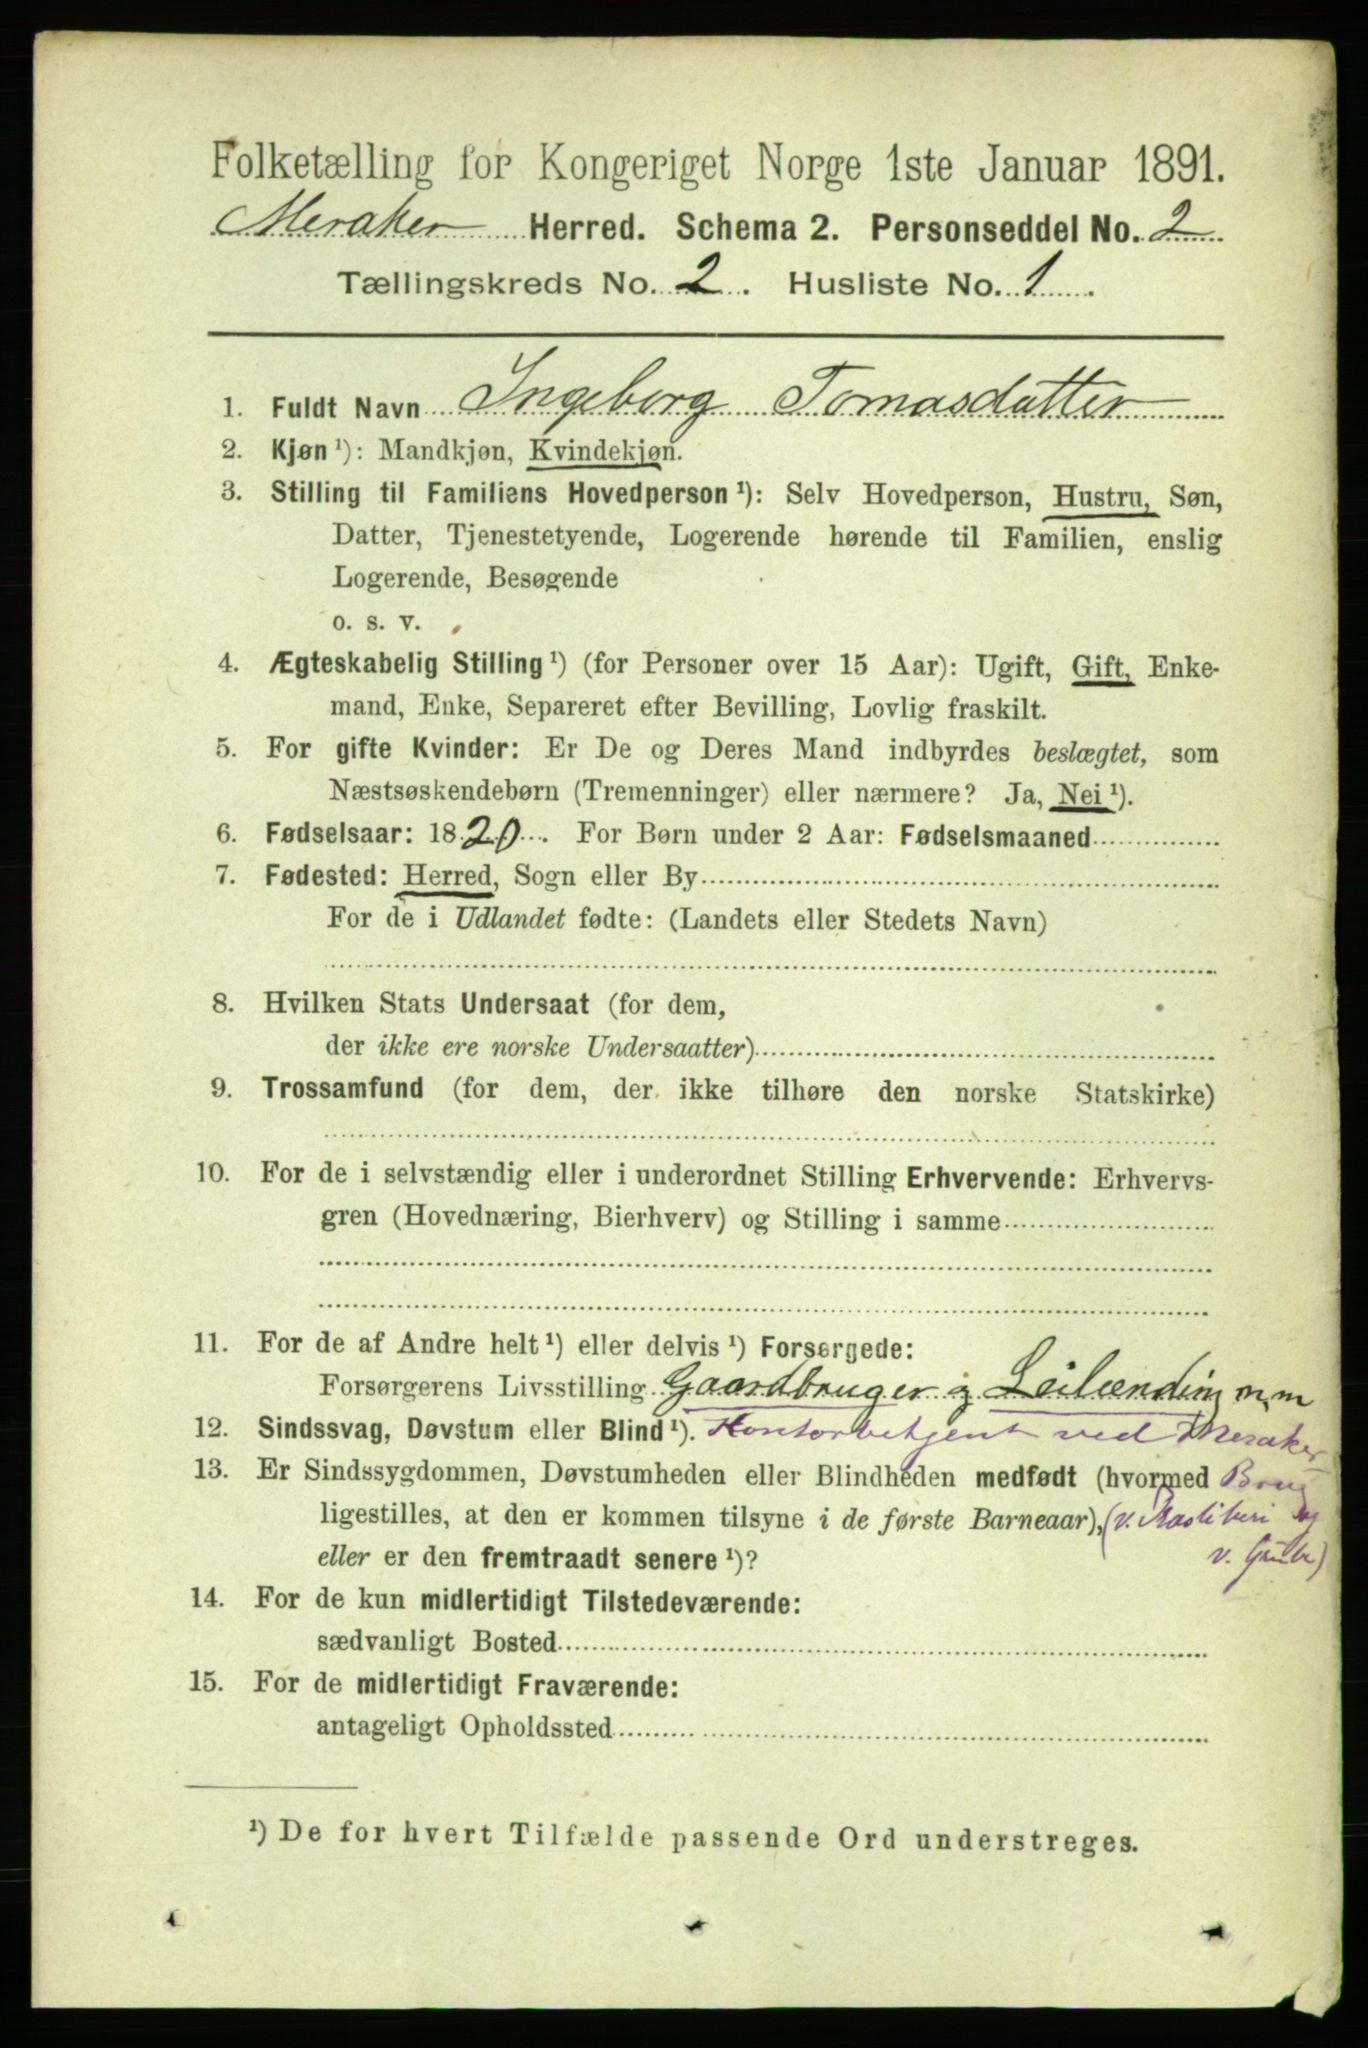 Folketælling for Kongeriget Norge 1ste Januar 1891.
Meraker Herred. Schema 2. Personseddel No. 2
Tællingskreds No. 2. Husliste No. 1.
1. Fuldt Navn Ingeborg Tomasdatter
2. Kjøn ¹): Mandkjøn, Kvindekjøn.
3. Stilling til Familiens Hovedperson ¹): Selv Hovedperson, Hustru, Søn,
Datter, Tjenestetyende, Logerende hørende til Familien, enslig
Logerende, Besøgende
o. s. v.
4. Ægteskabelig Stilling ¹) (for Personer over 15 Aar): Ugift, Gift, Enke-
mand, Enke, Separeret efter Bevilling, Lovlig fraskilt.
5. For gifte Kvinder: Er De og Deres Mand indbyrdes beslægtet, som
Næstsøskendebørn (Tremenninger) eller nærmere? Ja, Nei ¹).
6. Fødselsaar: 1820. For Børn under 2 Aar: Fødselsmaaned
7. Fødested: Herred, Sogn eller By
For de i Udlandet fødte: (Landets eller Stedets Navn)
8. Hvilken Stats Undersaat (for dem,
der ikke ere norske Undersaatter)
9. Trossamfund (for dem, der ikke tilhøre den norske Statskirke)
10. For de i selvstændig eller i underordnet Stilling Erhvervende: Erhvervs-
gren (Hovednæring, Bierhverv) og Stilling i samme
11. For de af Andre helt ¹) eller delvis ¹) Forsørgede:
Forsørgerens Livsstilling Gaardbruger og Leilænding m, m
12. Sindssvag, Døvstum eller Blind ¹). Kontorbetjent ved Meraker
13. Er Sindssygdommen, Døvstumheden eller Blindheden medfødt (hvormed Brug
ligestilles, at den er kommen tilsyne i de første Barneaar), (v.
eller er den fremtraadt senere ¹)? v.
14. For de kun midlertidigt Tilstedeværende:
sædvanligt Bosted
15. For de midlertidigt Fraværende:
antageligt Opholdssted
¹) De for hvert Tilfælde passende Ord understreges.